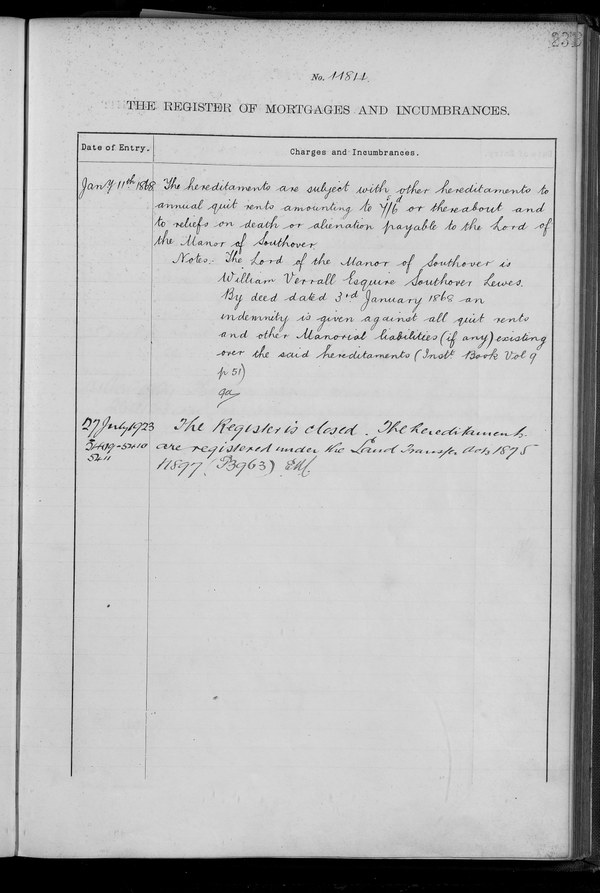 No. 11814
THE REGISTER OF MORTGAGES AND INCUMBRANCES.
Date of Entry.
Charges and Incumbrances.
Jany 11th 1868 The hereditaments are subject with other hereditaments to
annual quit rents amounting to or thereabout and
to reliefs on death or alienation payable to the Lord of
the Manor of Southover.
Notes:- The Lord of the Manor of Southover is
William Verrall Esquire Southover Lewes.
By deed dated 3rd January 1868 an
indemnity is given against all quit rents
and other Manorial liabilities (if any) existing
over the said hereditaments (Inst. Book Vol 9
p 51)
27 July 1923 The Register is closed. The hereditaments
are registered under the Land Transfer Acts 1875
5411 & 1897 (P3963)